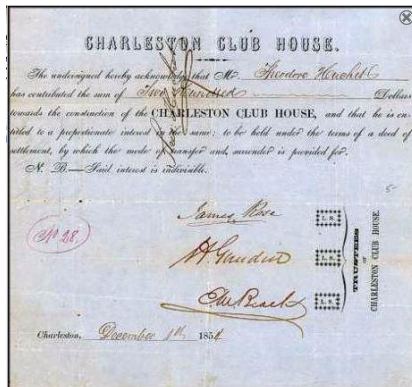 CHARLESTON CLUB HOUSE.
The undersigned hereby acknowledge that Mr. Theodore
has contributed the sum of Two Hundred Dollars
towards the construction of the CHARLESTON CLUB HOUSE, and that he is en-
titled to a proportionate interest in the same; to be held under the terms of a deed of
settlement, by which the mode of transfer and surrender is provided for.
N. B.—Said interest is indivisible.
James Rose
L. S.
No 28.
L. S.
L. S.
TRUSTEES
OF
CHARLESTON CLUB HOUSE
Charleston, December 1st 185